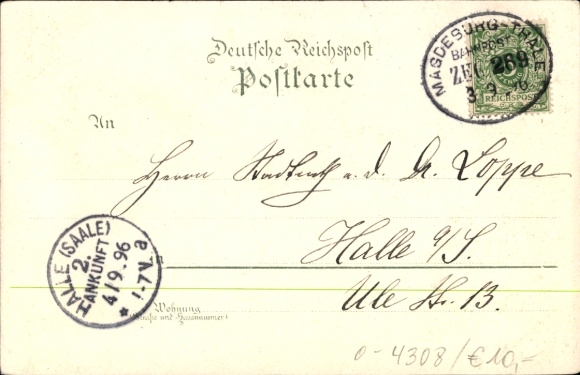 Deutsche Reichspost
Postkarte
MAGDEBURG-THALE
BAHNPOST
ZUG 269
3 9 96
REICHSPOST
An
Herrn Stadtrath a. d. Dr. Loppe
Halle a/S.
Ule Str. 13.
HALLE (SAALE)
2.
ANKUNFT
4/9.96
* 1-7 V. a
Wohnung
(Straße und Hausnummer)
0-4308/€10,-